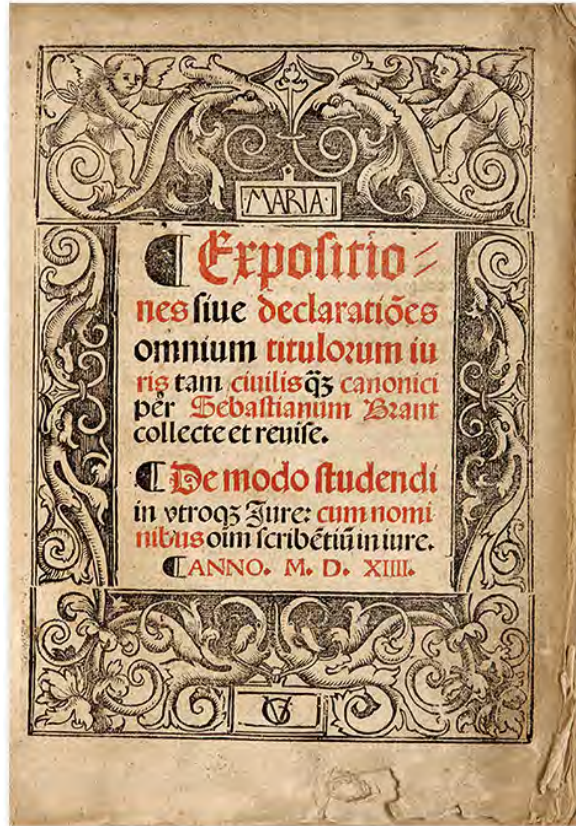 MARIA
¶ Expoſitio⸗
nes ſiue declaratiões
omnium titulorum iu
ris tam ciuilis q̃ꝫ canonici
per Sebaſtianum Brant
collecte et reuiſe.
¶ De modo ſtudendi
in vtroqꝫ Jure: cum nomi
nibus oim ſcribẽtiũ in iure.
¶ ANNO. M. D. XIIII.